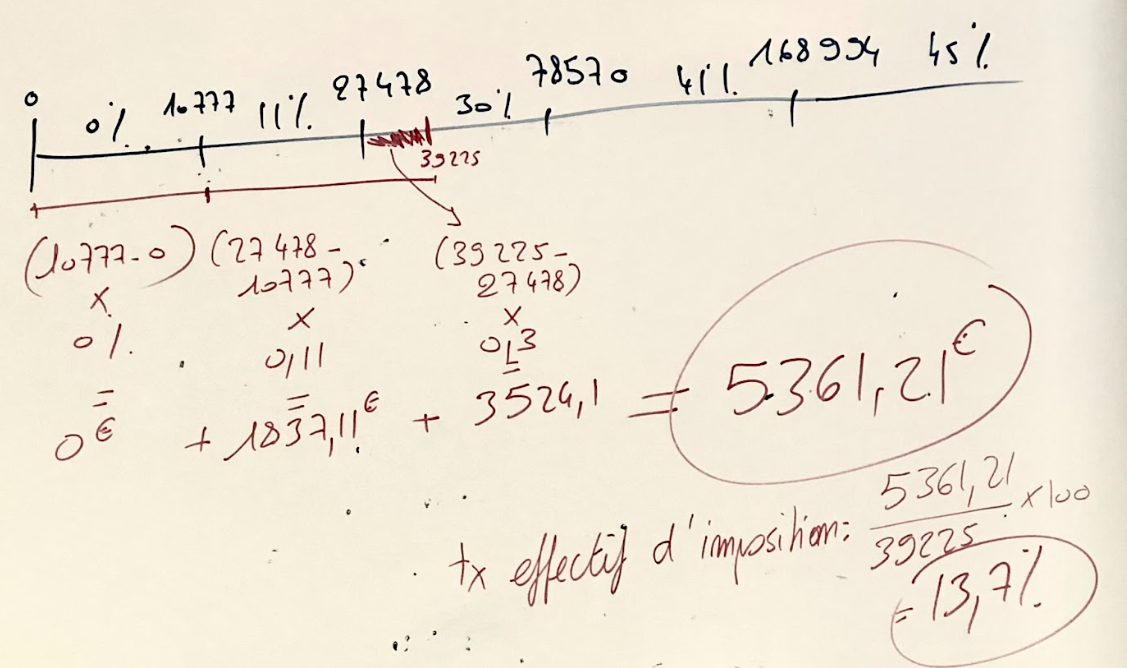 0 0% 10777 11% 27478 30% 78570 41% 168994 45%
39225
(10777-0) (27478- (39225-
10777) 27478)
x x x
0% 0,11 0,3
= = =
0€ + 1837,11€ + 3524,1 = 5361,21€
tx effectif d'imposition: 5361,21 x100
39225
= 13,7%